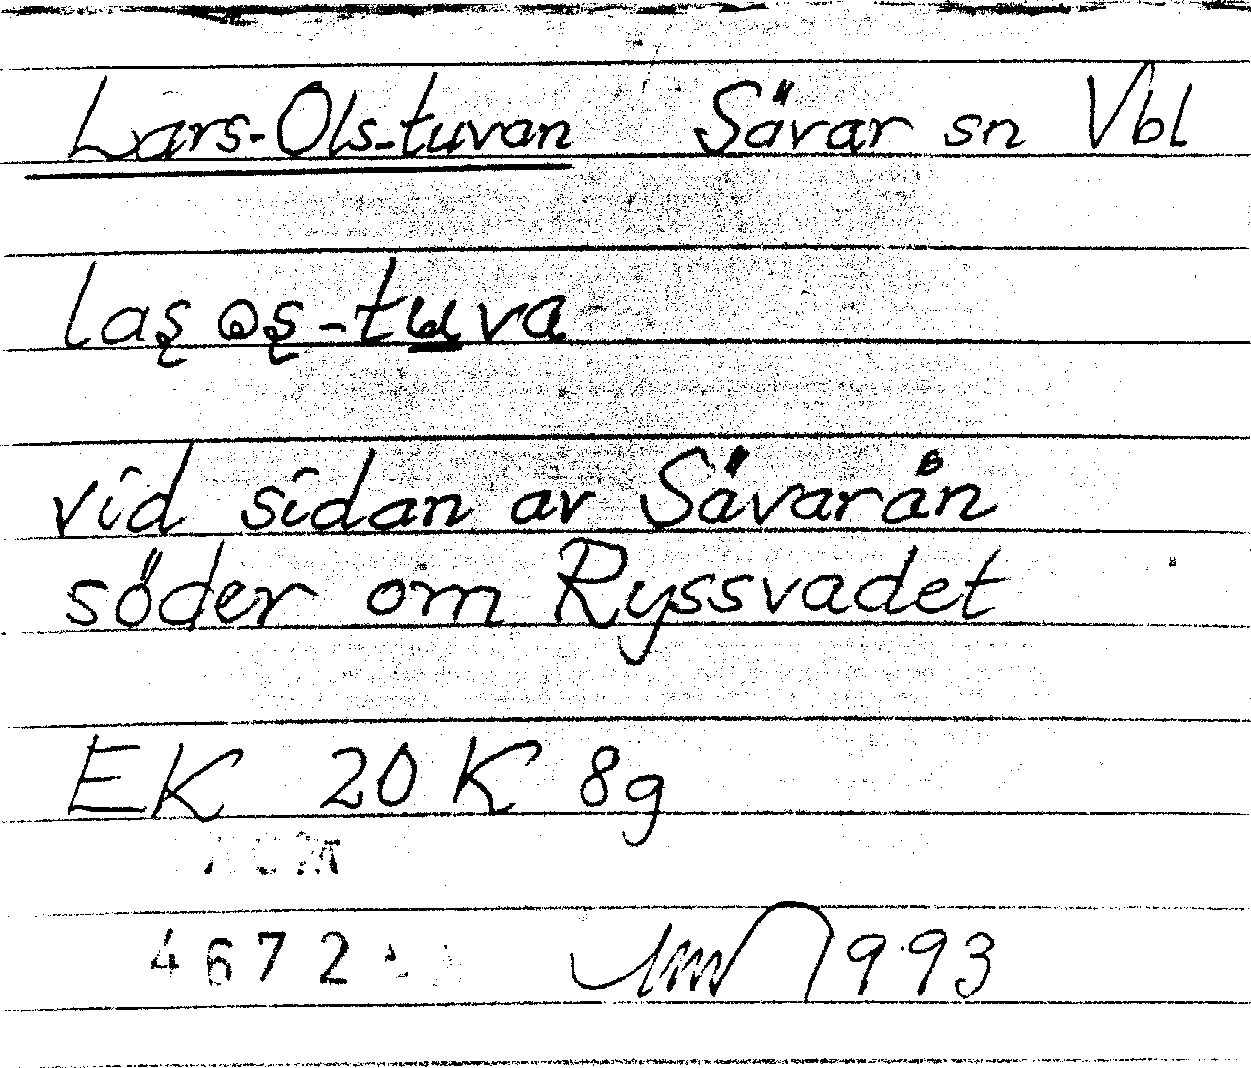 Lars-Ols-tuvan Sävar sn Vbl
vid sidan av Sävarån
söder om Ryssvadet
EK 20 K 8g
4672
1993